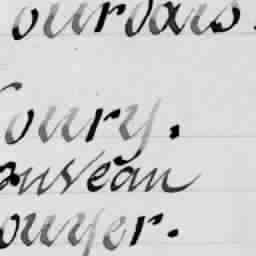 ourdais.
oury.
auveau
ouyer.